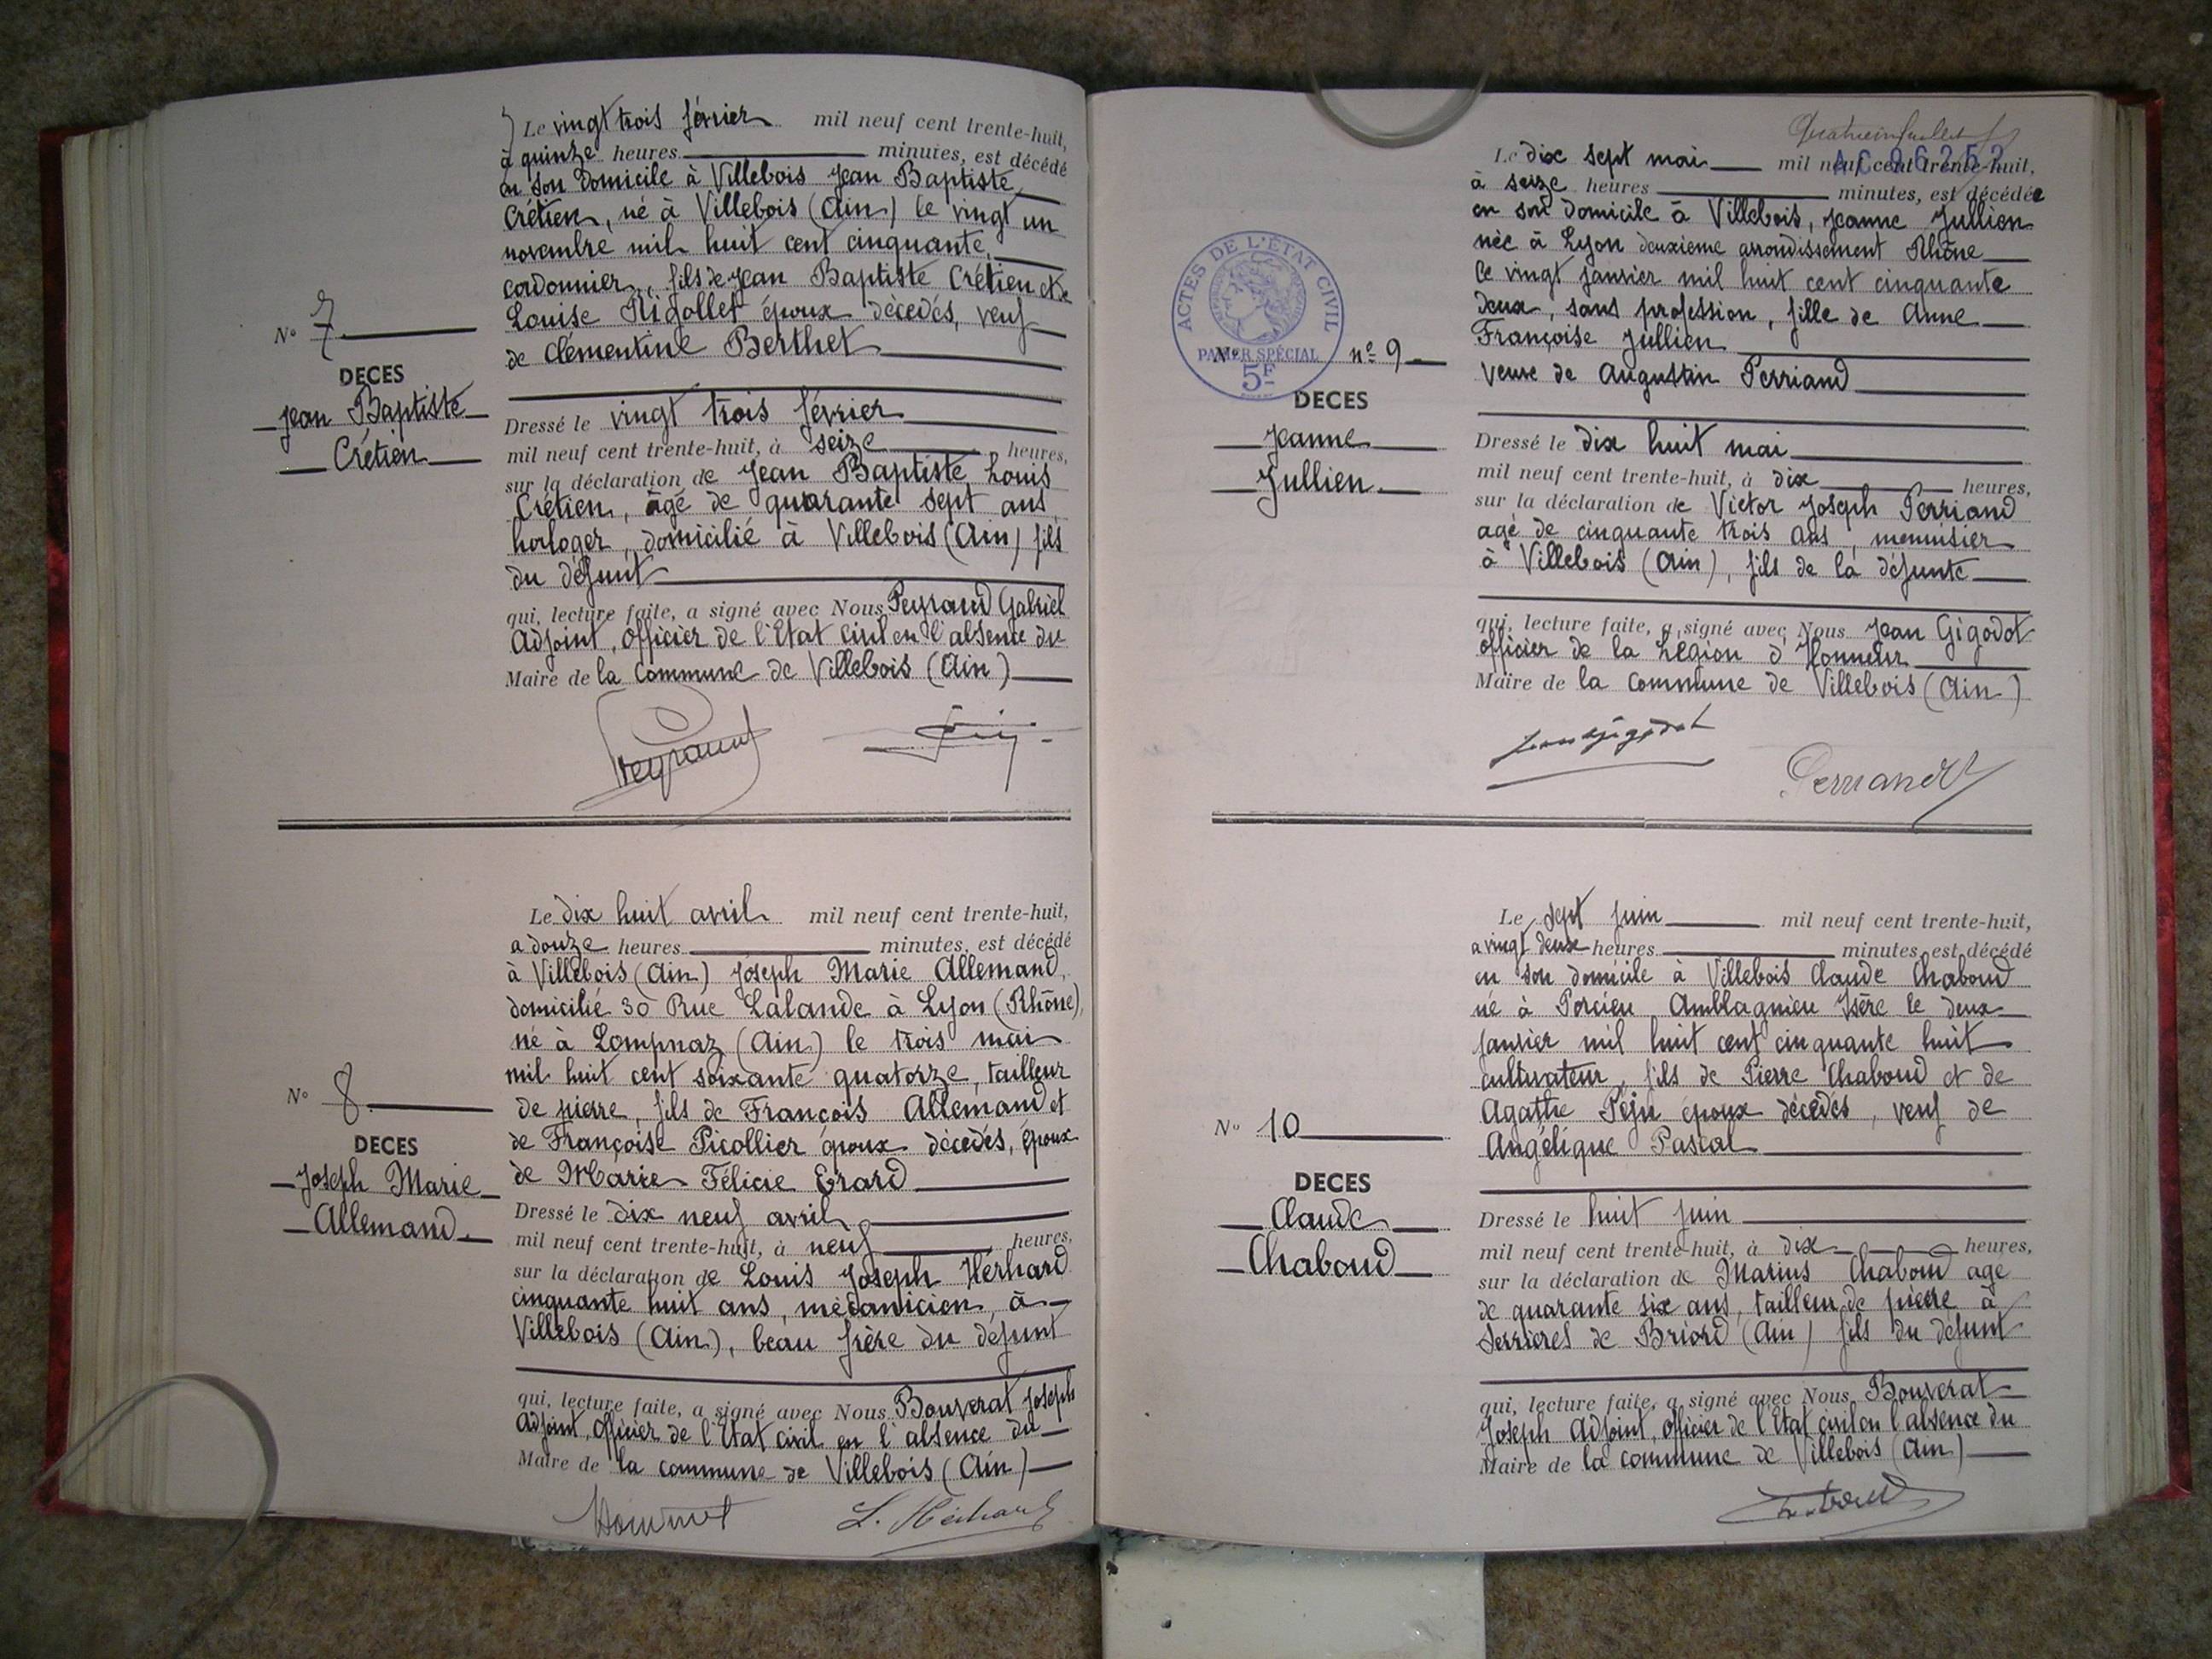 Le vingt trois février mil neuf cent trente-huit,
à quinze heures minutes, est décédé
en son domicile à Villebois Jean Baptiste
Crétien, né à Villebois (Ain) le vingt un
novembre mil huit cent cinquante,
cordonnier, fils de Jean Baptiste Crétien et de
Louise Rigollet époux décédés, veuf
de Clémentine Berthet
N° 7
DECES
Jean Baptiste
Crétien
Dressé le vingt trois février
mil neuf cent trente-huit, à seize heures,
sur la déclaration de Jean Baptiste Louis
Crétien, âgé de quarante sept ans
horloger, domicilié à Villebois (Ain) fils
du défunt
qui, lecture faite, a signé avec Nous Peyraud Gabriel
Adjoint, Officier de l'Etat civil en l'absence du
Maire de la commune de Villebois (Ain)
Peyraud
Le dix huit avril mil neuf cent trente-huit,
a douze heures minutes, est décédé
à Villebois (Ain) Joseph Marie Allemand,
domicilié 30 Rue Lalande à Lyon (Rhône),
né à Lompnaz (Ain) le trois mai
mil huit cent soixante quatorze, tailleur
de pierre, fils de François Allemand et
de Françoise Picollier époux décédés, époux
de Marie Félicie Erard
N° 8
DECES
Joseph Marie
Allemand
Dressé le dix neuf avril
mil neuf cent trente-huit, à neuf heures,
sur la déclaration de Louis Joseph Herhard
cinquante huit ans, mécanicien, à
Villebois (Ain), beau frère du défunt
qui, lecture faite, a signé avec Nous Bouverat Joseph
Adjoint, Officier de l'Etat civil en l'absence du
Maire de la commune de Villebois (Ain)
L. Herhard
AC 26252
Le dix sept mai mil neuf cent trente-huit,
à seize heures minutes, est décédée
en son domicile à Villebois, Jeanne Jullien
née à Lyon deuxième arrondissement Rhône
le vingt janvier mil huit cent cinquante
deux, sans profession, fille de Anne
Françoise Jullien
veuve de Augustin Perriand
ACTES DE L'ÉTAT CIVIL
PAPIER SPÉCIAL
5F
N° n° 9
DECES
Jeanne
Jullien
Dressé le dix huit mai
mil neuf cent trente-huit, à dix heures,
sur la déclaration de Victor Joseph Perriand
agé de cinquante trois ans, menuisier
à Villebois (Ain), fils de la défunte
qui, lecture faite, a signé avec Nous Jean Gigodot
officier de la Légion d'Honneur
Maire de la commune de Villebois (Ain)
Jean Gigodot
Perriand
Le sept juin mil neuf cent trente-huit,
a vingt deux heures minutes, est décédé
en son domicile à Villebois Claude Chaboud
né à Porcieu Amblagnieu Isère le deux
janvier mil huit cent cinquante huit
cultivateur, fils de Pierre Chaboud et de
Agathe Péju époux décédés, veuf de
Angélique Pascal
N° 10
DECES
Claude
Chaboud
Dressé le huit juin
mil neuf cent trente-huit, à dix heures,
sur la déclaration de Marius Chaboud agé
de quarante six ans, tailleur de pierre à
Serrières de Briord (Ain) fils du défunt
qui, lecture faite, a signé avec Nous Bouverat
Joseph Adjoint, Officier de l'Etat civil en l'absence du
Maire de la commune de Villebois (Ain)